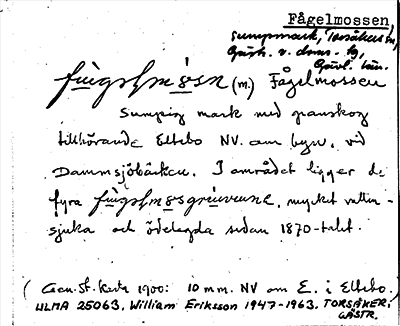 Fågelmossen,
sumpmark, Torsåkers sn,
Gästr. v. doms. lg,
Gävl. län.
(m.) Fågelmossen
Sumpig mark med granskog
tillhörande Eltebo NV. om byn, vid
Dammsjöbäcken. I området ligger de
fyra mycket vatten-
sjuka och ödelagda sedan 1870-talet.
(Gen. St. karta 1900: 10 mm. NV om E. i Eltebo.)
ULMA 25063. William Eriksson 1947-1963. TORSÅKER,
GÄSTR.